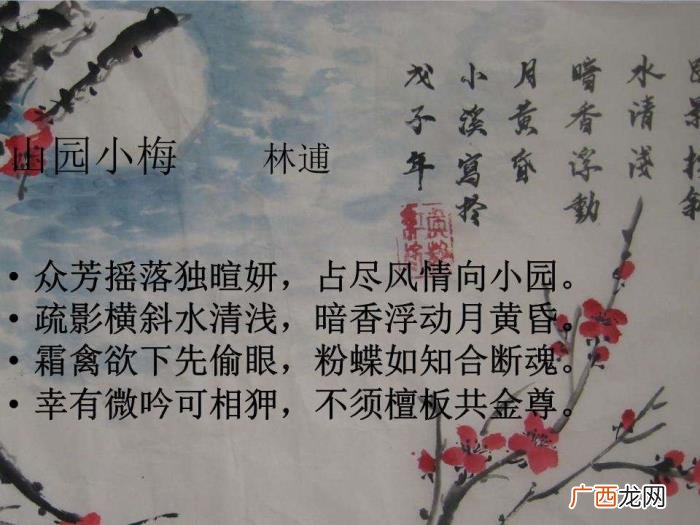 山园小梅 林逋
• 众芳摇落独暄妍，占尽风情向小园。
• 疏影横斜水清浅，暗香浮动月黄昏。
• 霜禽欲下先偷眼，粉蝶如知合断魂。
• 幸有微吟可相狎，不须檀板共金尊。
水清淺
暗香浮動
月黄昏
小溪寫於
戊子年
广西龙网